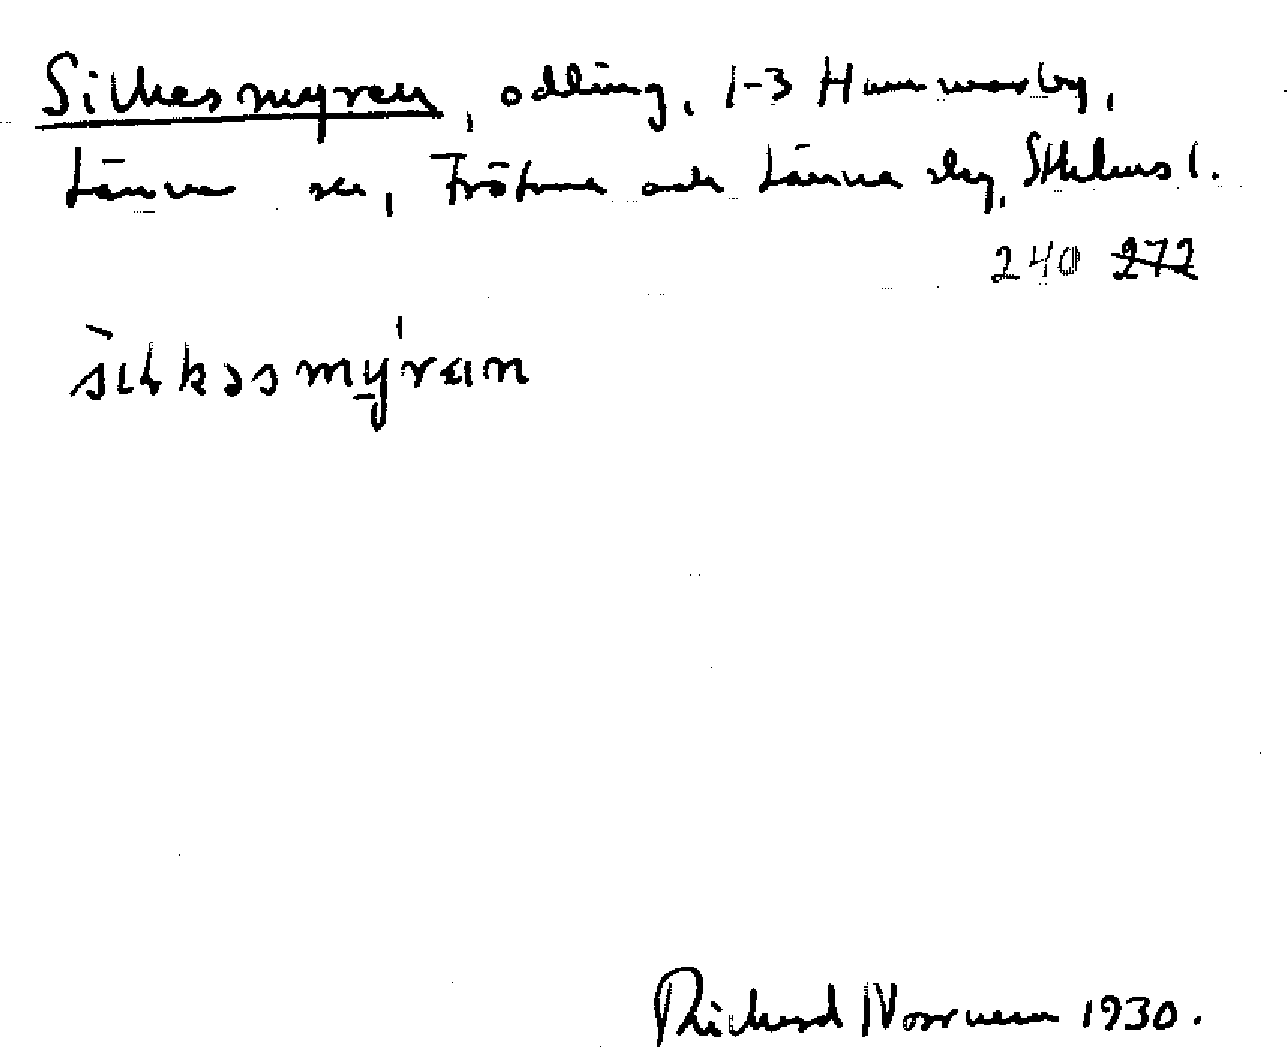 Silkesmyren, odling, 1-3 Hammarby,
Länna sn, Frötuna och Länna skg, Sthlms l.
240 272
silkəsmýrən
Richard Norrman 1930.